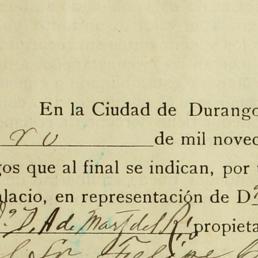 En la Ciudad de Durango
ro de mil novec
gos que al final se indican, por
alacio, en representación de D
D. A de Mart del R propieta